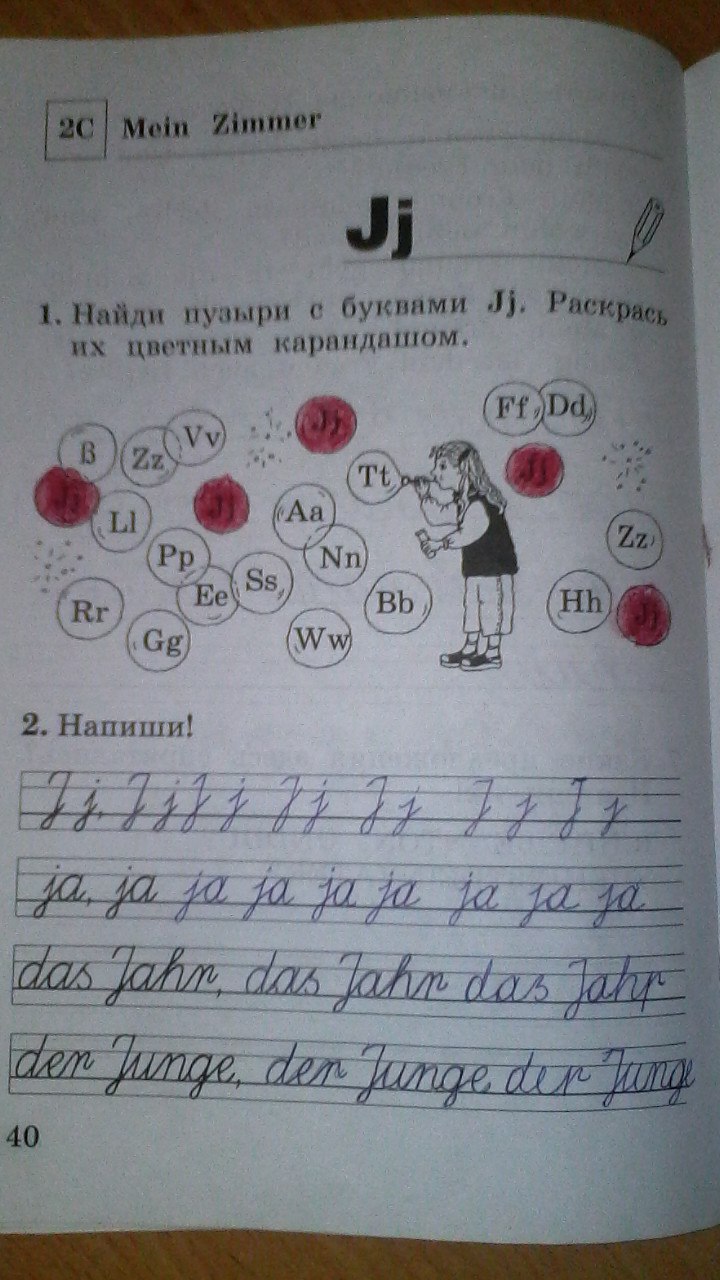 2C Mein Zimmer
Jj
1. Найди пузыри с буквами Jj. Раскрась
их цветным карандашом.
ß Zz Vv Jj Ff Dd
Jj Ll Jj Aa Tt Jj
Pp Nn Zz
Rr Ee Ss Bb Hh Jj
Gg Ww
2. Напиши!
Jj. Jj Jj Jj Jj Jj Jj
ja, ja ja ja ja ja ja ja ja
das Jahr, das Jahr das Jahr
der Junge, der Junge der Junge
40